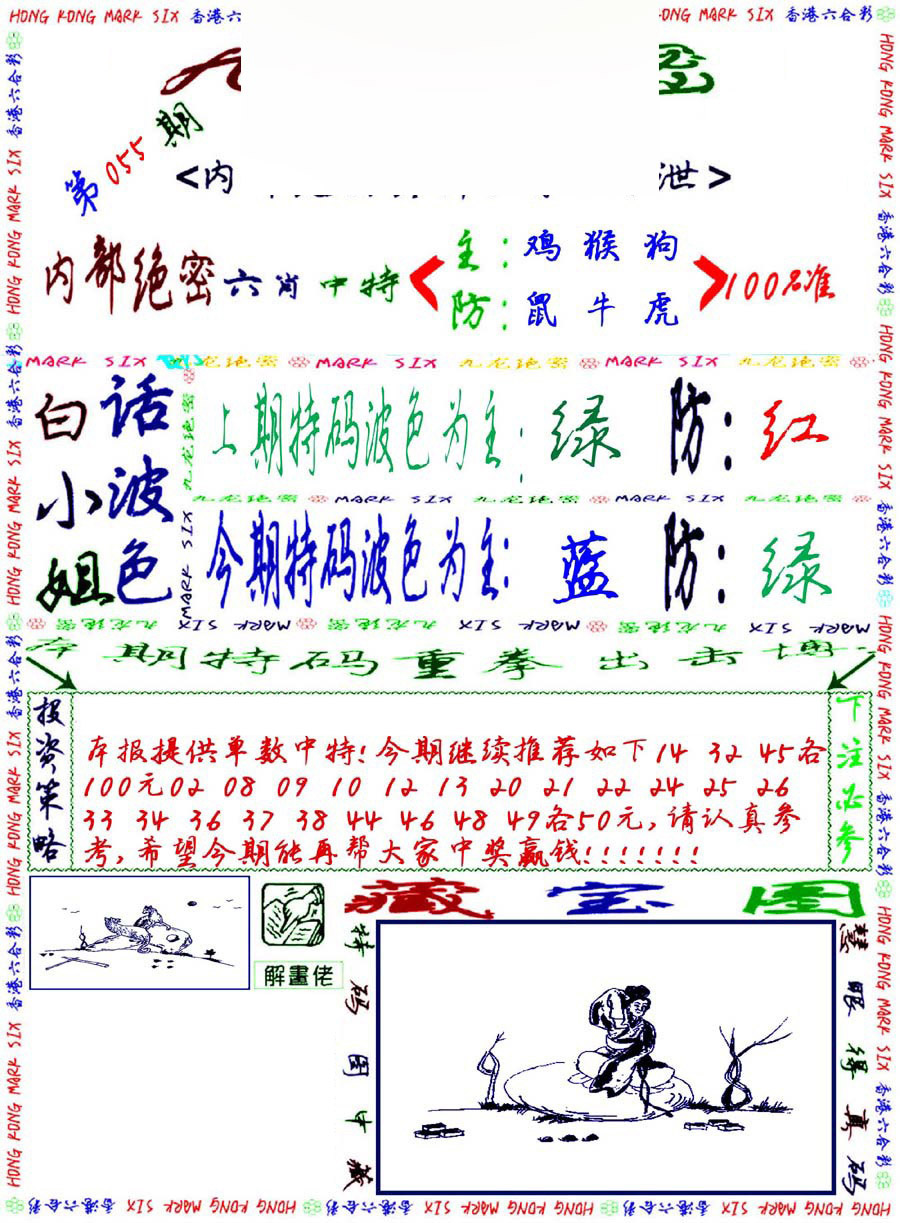 HONG KONG MARK SIX 香港六合彩
第055期
<内
泄>
内部绝密六肖中特
主:鸡猴狗
防:鼠牛虎
100%准
MARK SIX 九龙绝密 MARK SIX 九龙绝密 MARK SIX 九龙绝密
白话小姐
波色
上期特码波色为主:绿 防:红
九龙绝密 MARK SIX 九龙绝密 MARK SIX 九龙绝密
今期特码波色为主:蓝 防:绿
MARK SIX 九龙绝密 MARK SIX 九龙绝密 MARK SIX 九龙绝密
期特码重拳出击
投资策略
本报提供单数中特!今期继续推荐如下14 32 45各
100元02 08 09 10 12 13 20 21 22 24 25 26
33 34 36 37 38 44 46 48 49各50元,请认真参
考,希望今期能再帮大家中奖赢钱!!!!!!!
下注必参
解畫佬
藏宝图
特码图中藏
慧眼得真码
HONG KONG MARK SIX 香港六合彩